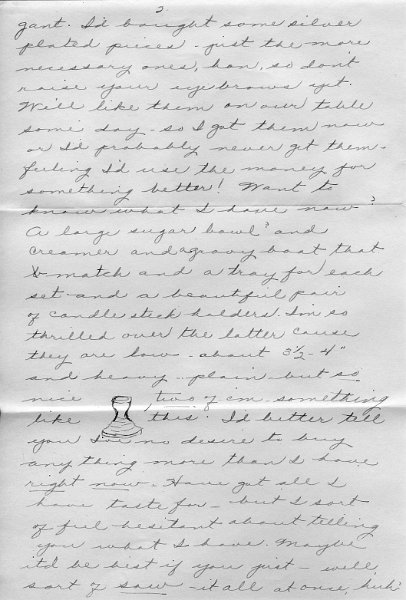 2
gant. I'd bought some silver
plated pieces - just the more
necessary ones, hon, so don't
raise your eyebrows yet.
We'll like them on our table
some day - so I got them now
or I'd probably never get them -
feeling I'd use the money for
something better! Want to
know what I have now?
A large sugar bowl and
creamer and a gravy boat that
match and a tray for each
set - and a beautiful pair
of candle stick holders. I'm so
thrilled over the latter cause
they are low - about 3½ - 4"
and heavy - plain - but so
nice, two of em - something
like this. I'd better tell
you I've no desire to buy
any thing more than I have
right now. Have got all I
have taste for - but I sort
of feel hesitant about telling
you what I have. Maybe
it'd be best if you just - well,
sort of saw - it all at once, huh?